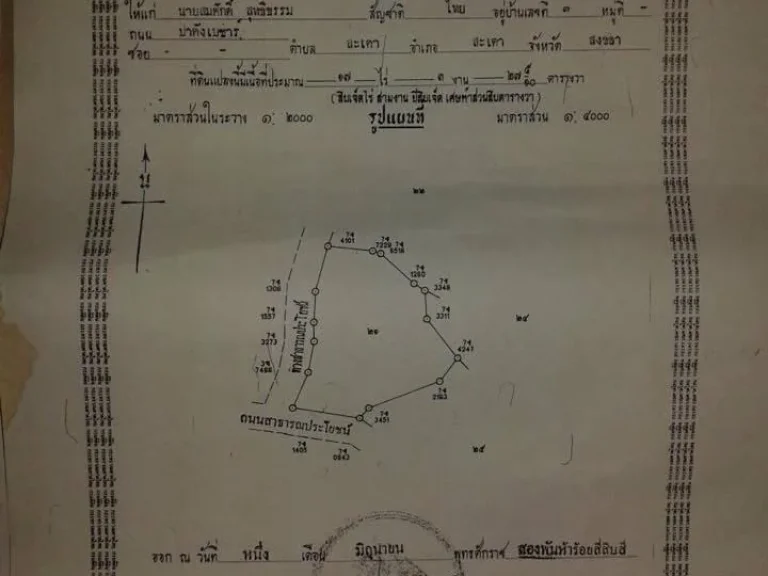 ให้แก่ นายสมศักดิ์ สุทธิธรรม สัญชาติ ไทย อยู่บ้านเลขที่ ๓ หมู่ที่ -
ถนน ปาดังเบซาร์
ซอย - - ตำบล สะเดา อำเภอ สะเดา จังหวัด สงขลา
ที่ดินแปลงนี้มีเนื้อที่ประมาณ ๑๗ ไร่ ๓ งาน ๒๗ ๕/๑๐ ตารางวา
(สิบเจ็ดไร่ สามงาน ยี่สิบเจ็ด เศษห้าส่วนสิบตารางวา)
มาตราส่วนในระวาง ๑: ๒๐๐๐ รูปแผนที่ มาตราส่วน ๑: ๔๐๐๐
น
๒๒
74 4101
74 7229
74 5518
74 1250
74 3348
74 3311
74 4247
74 3451
74 1309
74 1557
74 3273
7486
ทางสาธารณประโยชน์
๒๑
๒๔
ถนนสาธารณประโยชน์
74 1405
74 0943
๒๕
ออก ณ วันที่ หนึ่ง เดือน มิถุนายน พุทธศักราช สองพันห้าร้อยสี่สิบสี่